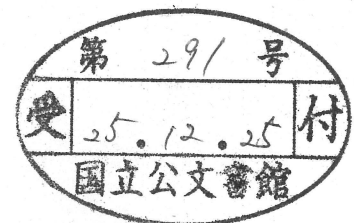 第 291 号
受 25.12.25 付
国立公文書館